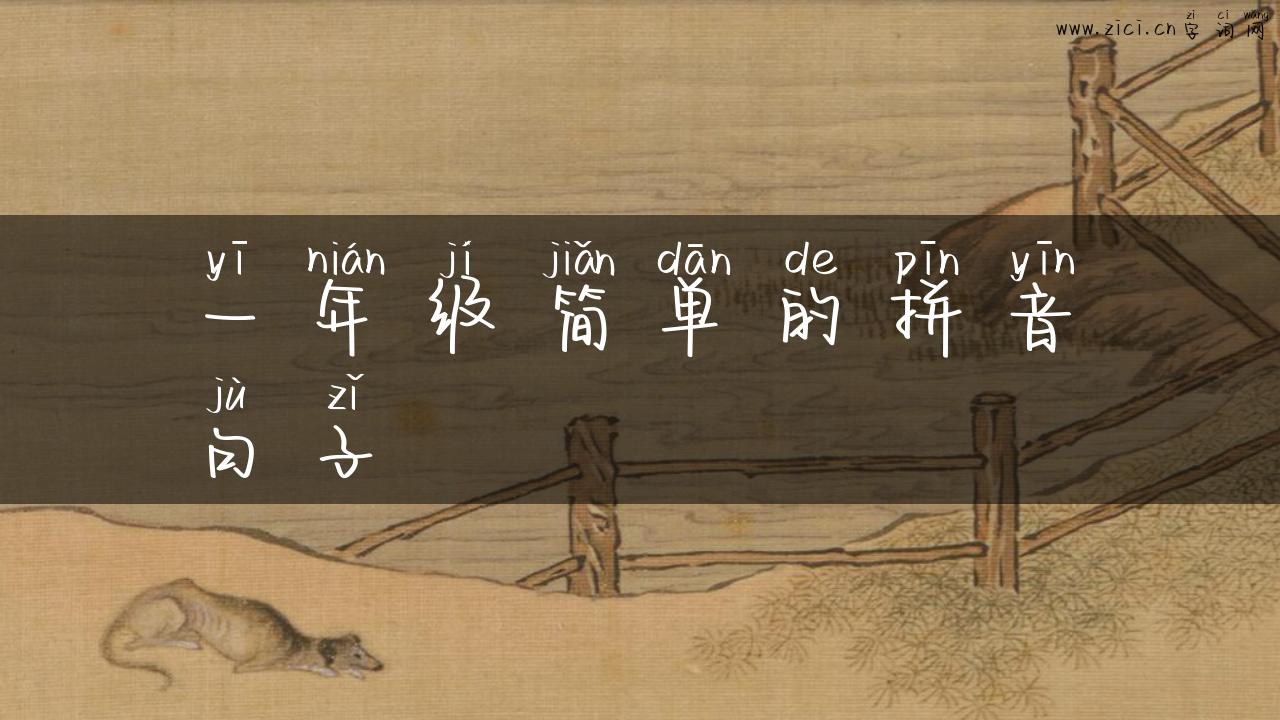 zì cí wǎng
www.zici.cn 字词网
yī nián jí jiǎn dān de pīn yīn
一年级简单的拼音
jù zǐ
句子